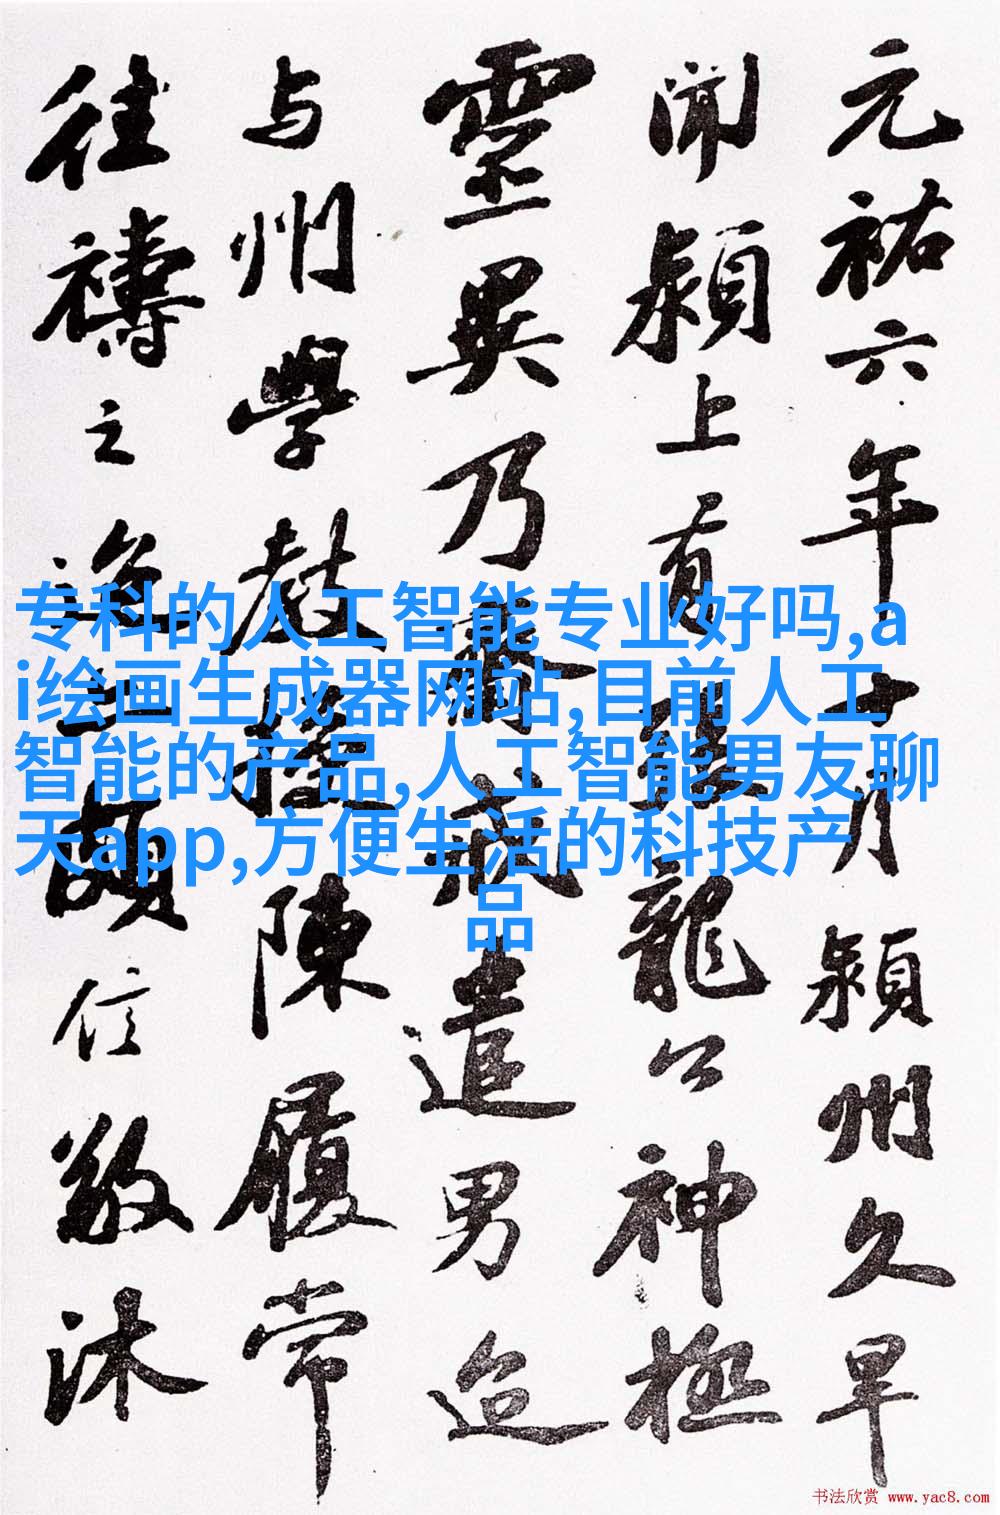 元祐六年十月潁州久旱
聞潁上有張龍公神極
靈異乃齋戒遣男迨
与州學教授陳履常
往禱之迨亦頗信敬沐
专科的人工智能专业好吗,a
i绘画生成器网站,目前人工
智能的产品,人工智能男友聊
天app,方便生活的科技产
品
书法欣赏 www.yac8.com